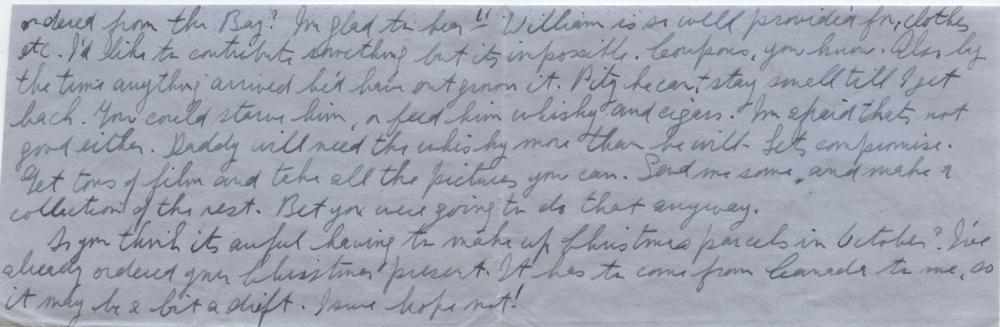 ordered from the Bay? I'm glad to hear "William is so well provided for, clothes
etc. I'd like to contribute something but its impossible. Coupons, you know. Also by
the time anything arrived he'd have outgrown it. Pity he can't stay small till I get
back. You could starve him, or feed him whisky and cigars. I'm afraid thats not
good either. Daddy will need the whisky more than he will. Lets compromise.
Get tons of film and take all the pictures you can. Send me some, and make a
collection of the rest. Bet you were going to do that anyway.
So you think its awful having to make up Christmas parcels in October? I've
already ordered your Christmas present. It has to come from Canada to me, so
it may be a bit adrift. I sure hope not!